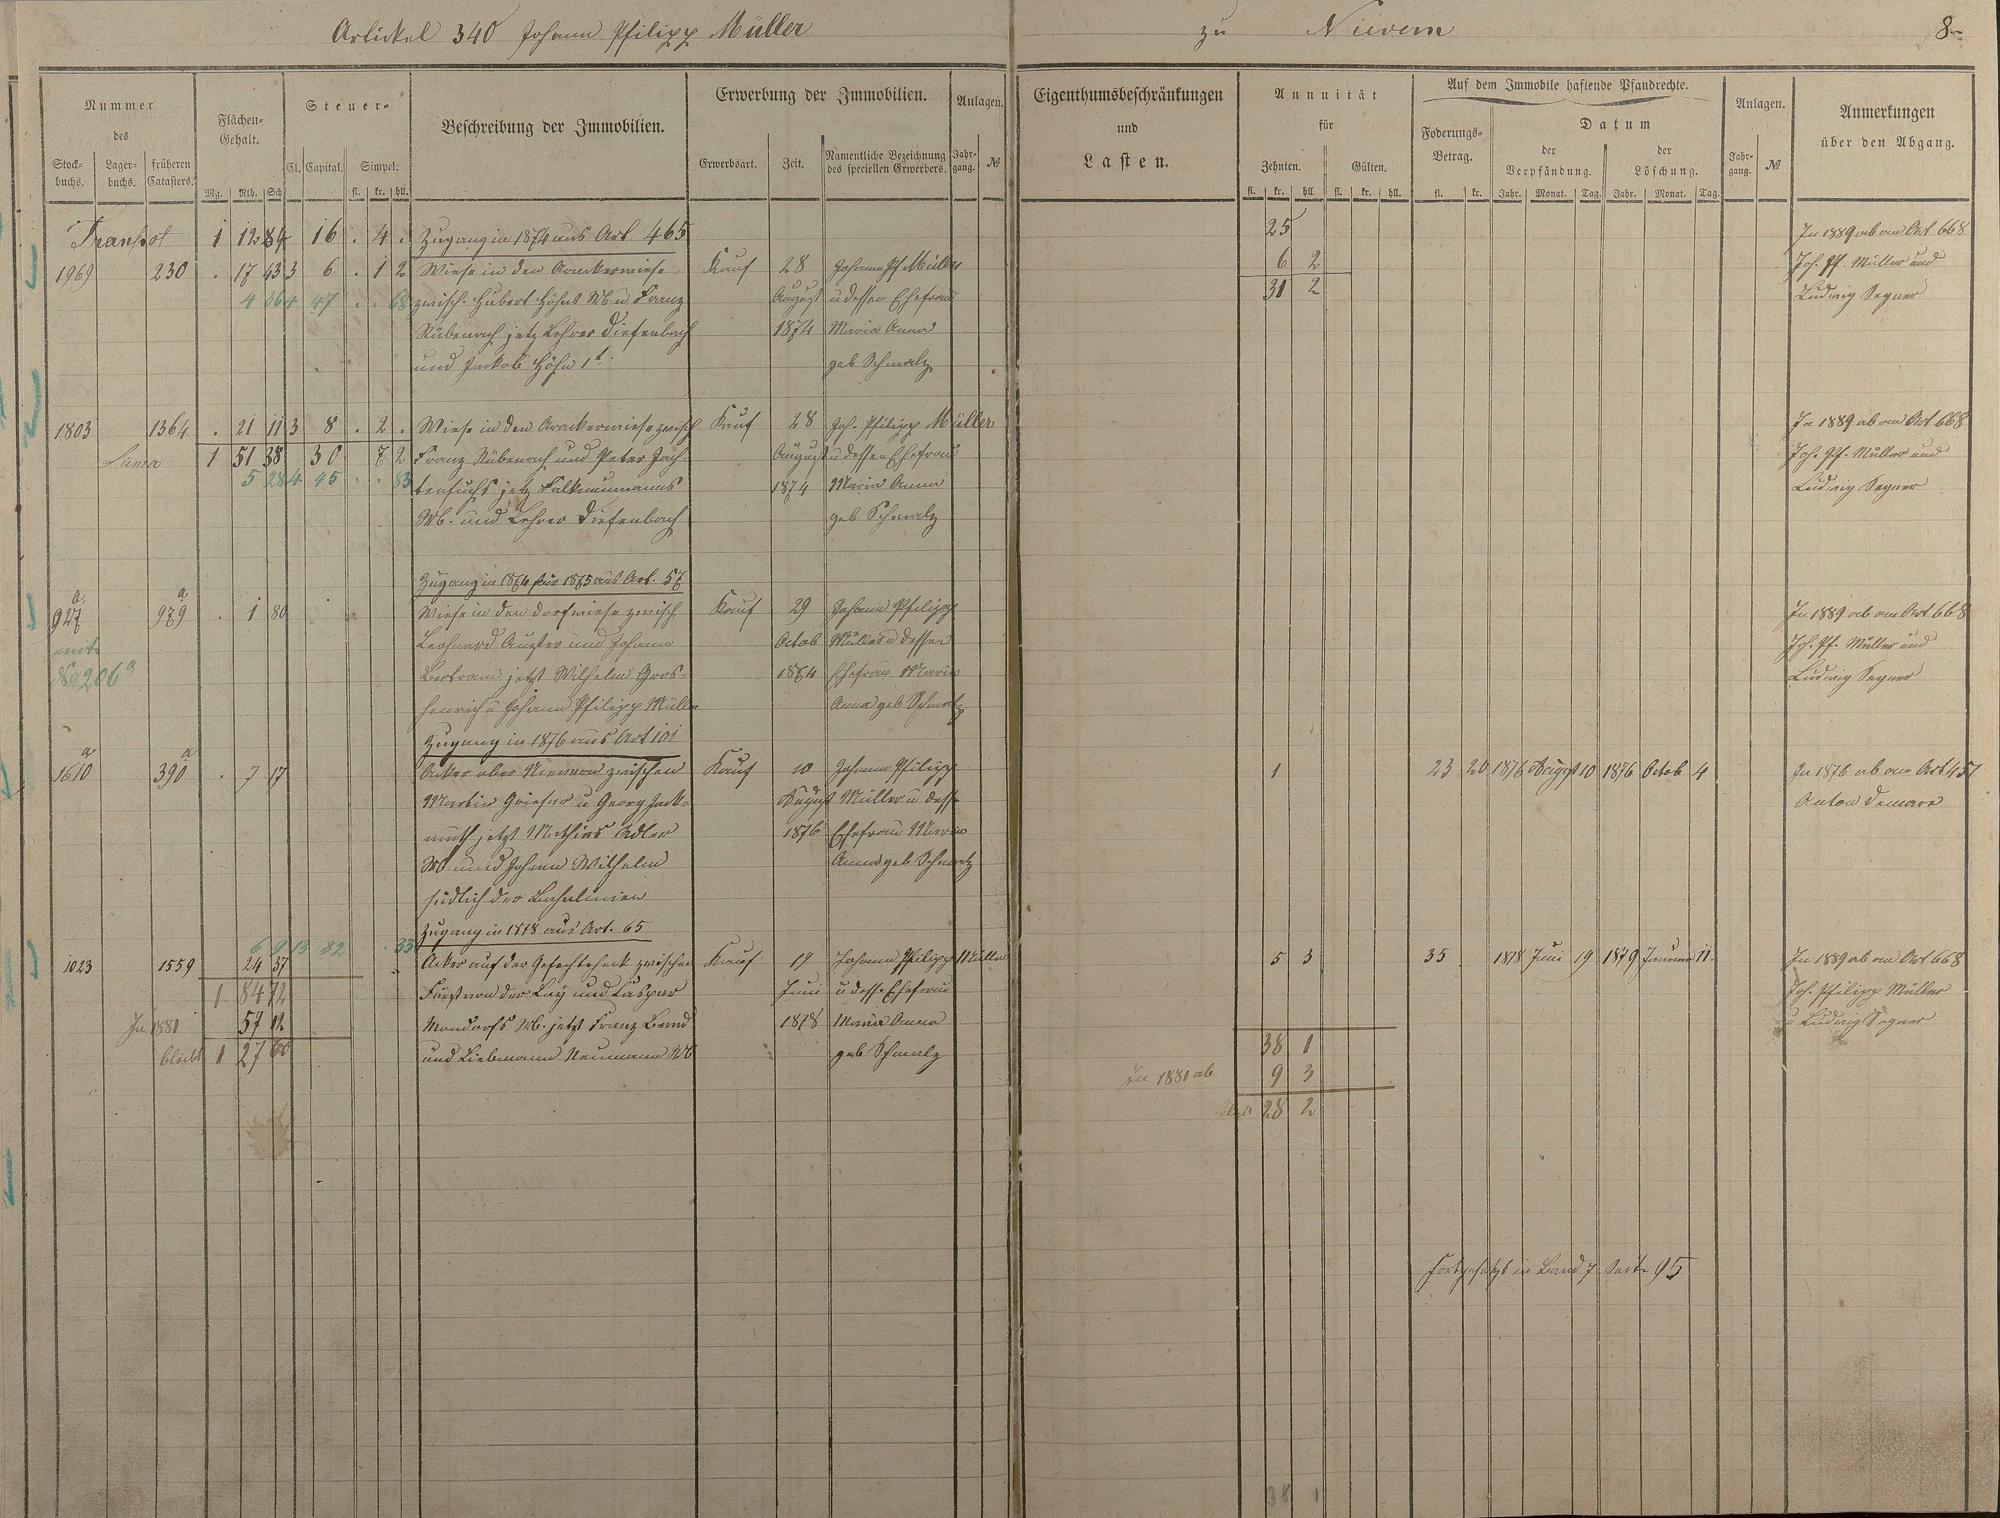 Artickel 340 Johann Philipp Müller
zu Nievern
8
Nummer
des
Stock-
buchs.
Lager-
buchs.
früheren
Catasters.
Flächen-
Gehalt.
Mg. Rth. Sch
Steuer-
Cl. Capital. Simpel.
fl. kr. hll.
Beschreibung der Immobilien.
Erwerbung der Immobilien.
Erwerbsart. Zeit.
Namentliche Bezeichnung
des speciellen Erwerbers.
Anlagen.
Jahr-
gang.
№
Eigenthumsbeschränkungen
und
Lasten.
Annuität
für
Zehnten. Gülten.
fl. kr. hll. fl. kr. hll.
Auf dem Immobile haftende Pfandrechte.
Foderungs-
Betrag.
fl. kr.
Datum
der
Verpfändung.
Jahr. Monat. Tag.
der
Löschung.
Jahr. Monat. Tag.
Anlagen.
Jahr-
gang.
№
Anmerkungen
über den Abgang.
Transpot 1 12 84 16 . 4 . Zugang in 1874 aus Art 465 25 In 1889 ab an Art 668
1969 230 . 17 43 3 6 . 1 2 Wiese in den Kauf 28 Johann Pf Müller 6 2 Joh. Pf. Müller und
4 36 4 47 . . 68 zwisch. Hubert Höhns Wb u Franz August u dessen Ehefrau 31 2 Ludwig Segner
Rübenach jetz Lehrer Diefenbach 1874 Maria Anna
und Jackob Höhn 1t geb Schmalz
1803 1364 . 21 11 3 8 . 2 . Wiese in den zwisch Kauf 28 Joh. Philipp Müller In 1889 ab an Art 668
Suma 1 51 38 30 7 2 Franz Rübenach und Peter Jach- August u dessen Ehefrau Joh. Pf. Müller und
5 28 4 45 . . 83 jetz 1874 Maria Anna Ludwig Segner
Wb. und Lehrer Diefenbach geb Schmalz
Zugang in 1874 für 1875 aus Art. 57
927 a 979 a . 1 80 Wiese in den Dorfwiese zwisch Kauf 29 Johann Philipp In 1889 ab an Art 668
Leohnard und Johann Octob Müller u dessen Joh. Pf. Müller und
№ 206 a Bertram jetzt Wilhelm Gros- 1874 Ehefrau Maria Ludwig Segner
henrich u Johann Philipp Müller Anna geb Schmalz
Zugang in 1876 aus Art 101
1610 a 390 a . 7 17 Acker ober Nievern zwischen Kauf 10 Johann Philipp 1 23 20 1876 August 10 1876 Octob 4 In 1876 ab an Art 457
Martin u Georg Jack- August Müller u dess Anton
muth jetzt Mathias Adler 1876 Ehefrau Maria
Wb und Johann Wilhelm Anna geb Schmalz
südlich der Bahnlinien
Zugang in 1878 aus Art. 65
6 9 13 82 . 33
1023 1559 24 37 Acker auf der zwischen Kauf 19 Johann Philipp Müller 5 3 35 1878 Juni 19 1879 Januar 11 In 1889 ab an Art 668
1 84 72 Fürst von der Lay und Caspar Juni u dess. Ehefrau Joh. Philipp Müller
In 1881 57 12 Mondorfs Wb. jetzt Franz 1878 Maria Anna u Ludwig Segner
bleibt 1 27 60 und Liebmann Neumann Wb geb Schmalz 38 1
In 1881 ab 9 3
28 2
Fortgesetzt in Band 7 Seite 95
38 1